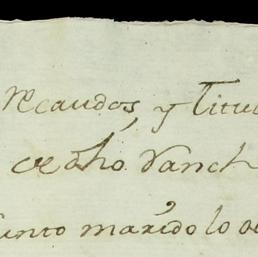 recaudos, y Titu
de dho Ranch
unto marido lo